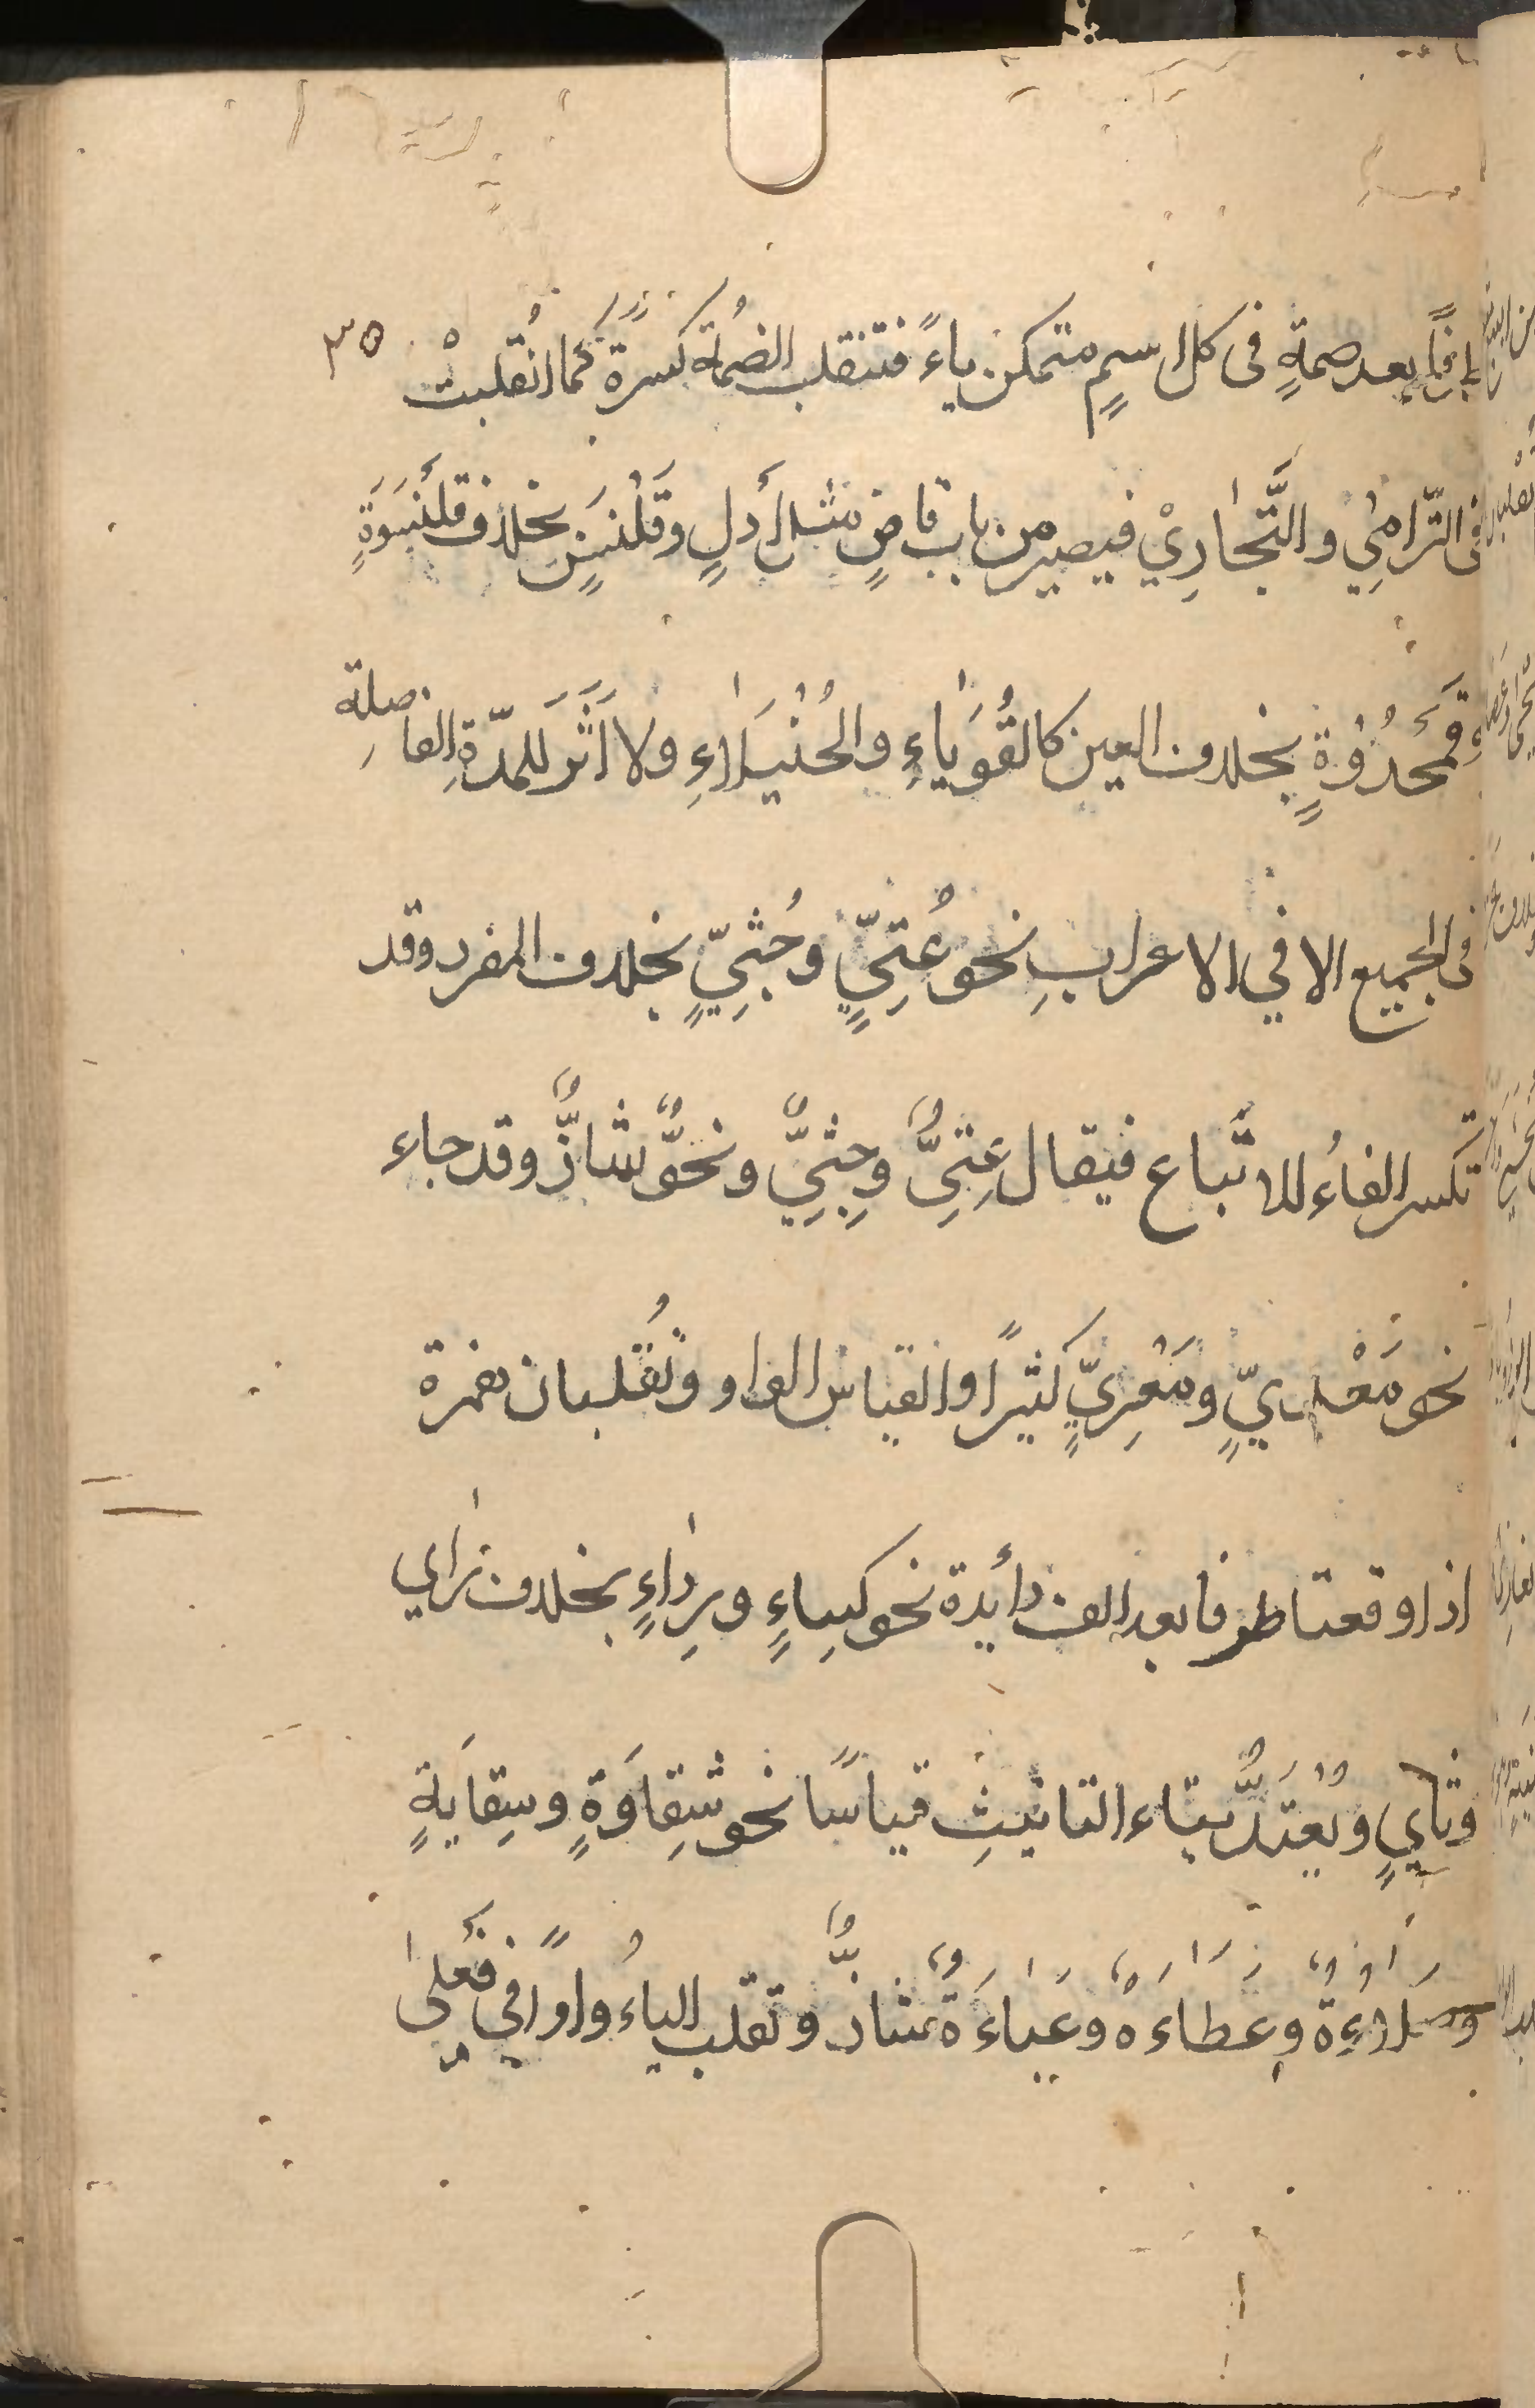 طرفًا بعد ضمةٍ فى كل اسمٍ متمكن ياءً فتنقلب الضمُة كسرة كما انُقلبتْ ٣٥
فى التّرامِيْ والتَّجارِيْ فيصير من باب قاضٍ مثل أَدلٍ وقَلَنْسٍ بخلاف قَلَنْسَوَةٍ
وقَمَحْدُوَةٍ بخلاف العين كالقُوَباءِ والخُيَلاءِ ولا اَثَرَ للمدّةِ الفاصلة
فى الجميع الا في الاعرابِ نحو عُتِيٍّ وجُثِيٍّ بخلاف المفرد وقد
تكسر الفاءُ للاتّباع فيقال عِتِيٌّ وجِثِيٌّ ونحوٌّ شاذٌّ وقد جاء
نحو مَعْدِيٍّ ومَغْزِيٍّ كثيرًا والقياس الواو وتُقلبان همزة
اذا وقعتا طرفا بعد الف زائدة نحو كِساءٍ ورِداءٍ بخلاف راي
وثايٍ ويُعْتَدُّ بتاء التانيثِ قياسًا نحو شَقِاوَةٍ وسِقايَةٍ
وصَلاءَةٌ وعظاءَةٌ وعَباءَةٌ شاذٌّ وتقلب الياءُ واوًا في فَعْلى